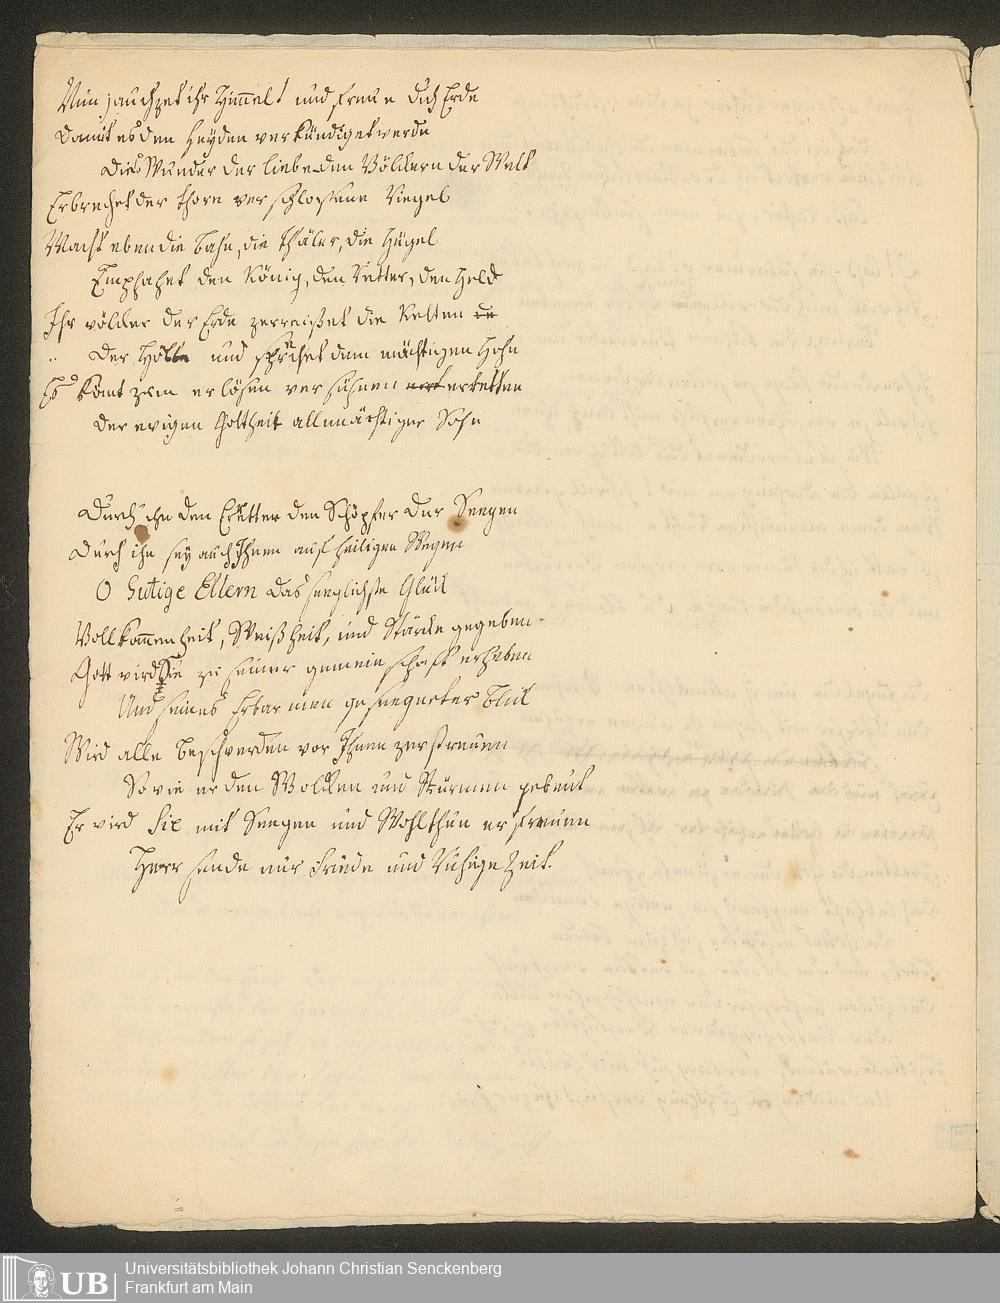 Nun jauchzet ihr Himmel! und freue dich Erde
Damit es den Heyden verkündiget werde
Dies Wunder der Liebe den Völckern der Welt
Erbrechet der Thore verschlossene Riegel
Macht eben die Bahn, die Thäler, die Hügel
Empfahet den König, den Retter, den Held
Ihr völcker der Erde zerreisset die Ketten de
Der Hölle und sprechet dem mächtigen Hohn
Es kömt zum erlösen versühnen erretten
Der ewigen Gottheit allmächtiger Sohn
Durch ihn den Erretter den Schöpfer der Seegen
Durch ihn sey auch Ihnen auf heiligen Wegen
O Gutige Eltern das seeglichste Glück
Vollkom̅enheit, Weißheit, und Stärcke gegeben
Gott wird Sie zu seiner gemeinschaft erheben
Und seines Erbarmen geseegneter Blick
Wird alle beschwerden vor Ihnen zerstreuen
So wie er den Wolcken und Stürmen gebeut
Er wird Sie mit Seegen und Wohlthun erfreuen
Herr sende nur Friede und Ruhige Zeit.
UB
Universitätsbibliothek Johann Christian Senckenberg
Frankfurt am Main